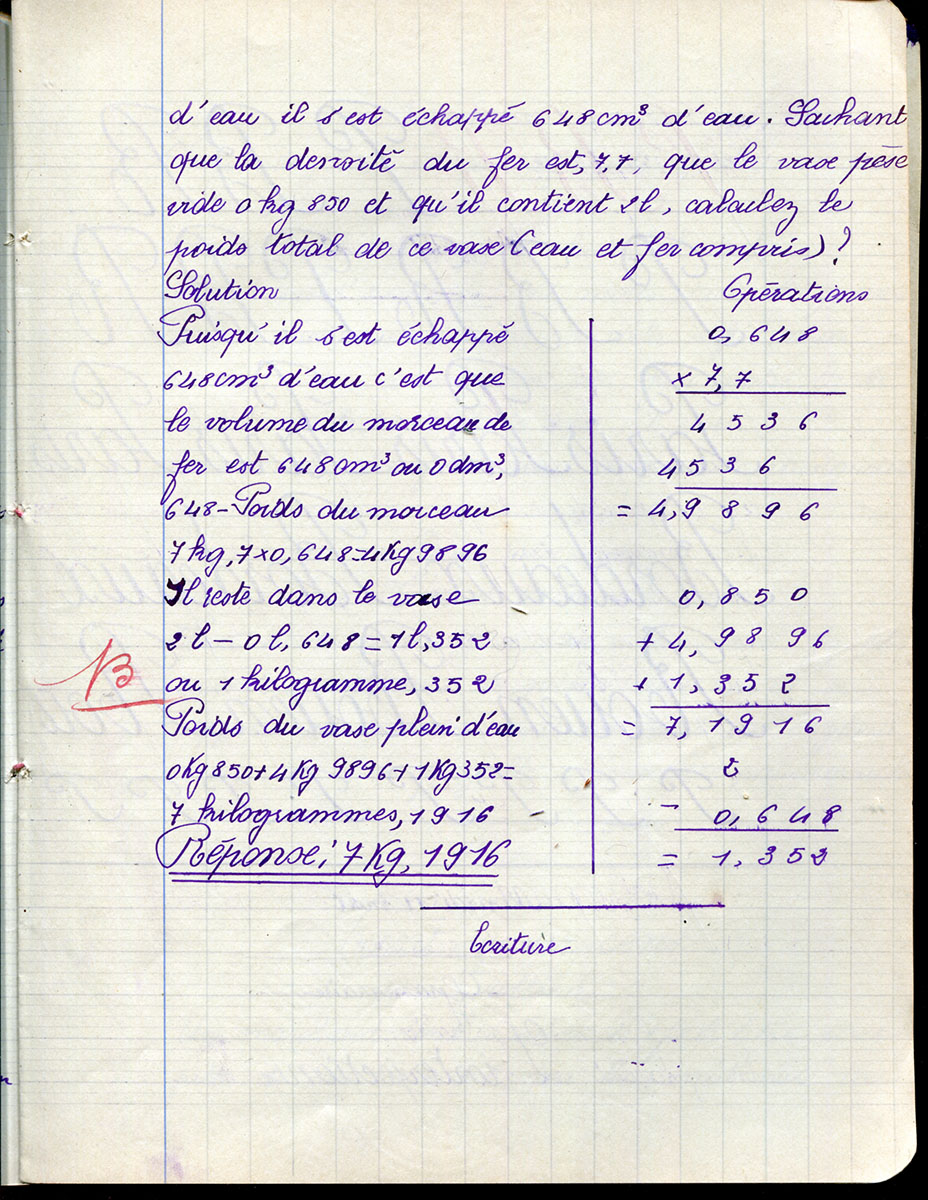 d'eau il s'est échappé 648cm³ d'eau. Sachant
que la densité du fer est, 7,7, que le vase pèse
vide 0 kg 850 et qu'il contient 2l, calculez le
poids total de ce vase (eau et fer compris)?
Solution Opérations
Puisqu'il s'est échappé
648cm³ d'eau c'est que
le volume du morceau de
fer est 648cm³ ou 0dm³,
648 - Poids du morceau
7kg,7×0,648=4Kg9896
Il reste dans le vase
2l - 0l,648 = 1l,352
ou 1 kilogramme,352
Poids du vase plein d'eau
0Kg850+4Kg9896+1Kg352=
7 kilogrammes,1916
Réponse: 7Kg,1916
0,648
× 7,7
4536
4536
= 4,9896
0,850
+ 4,9896
+ 1,352
= 7,1916
2
- 0,648
= 1,352
B
Ecriture